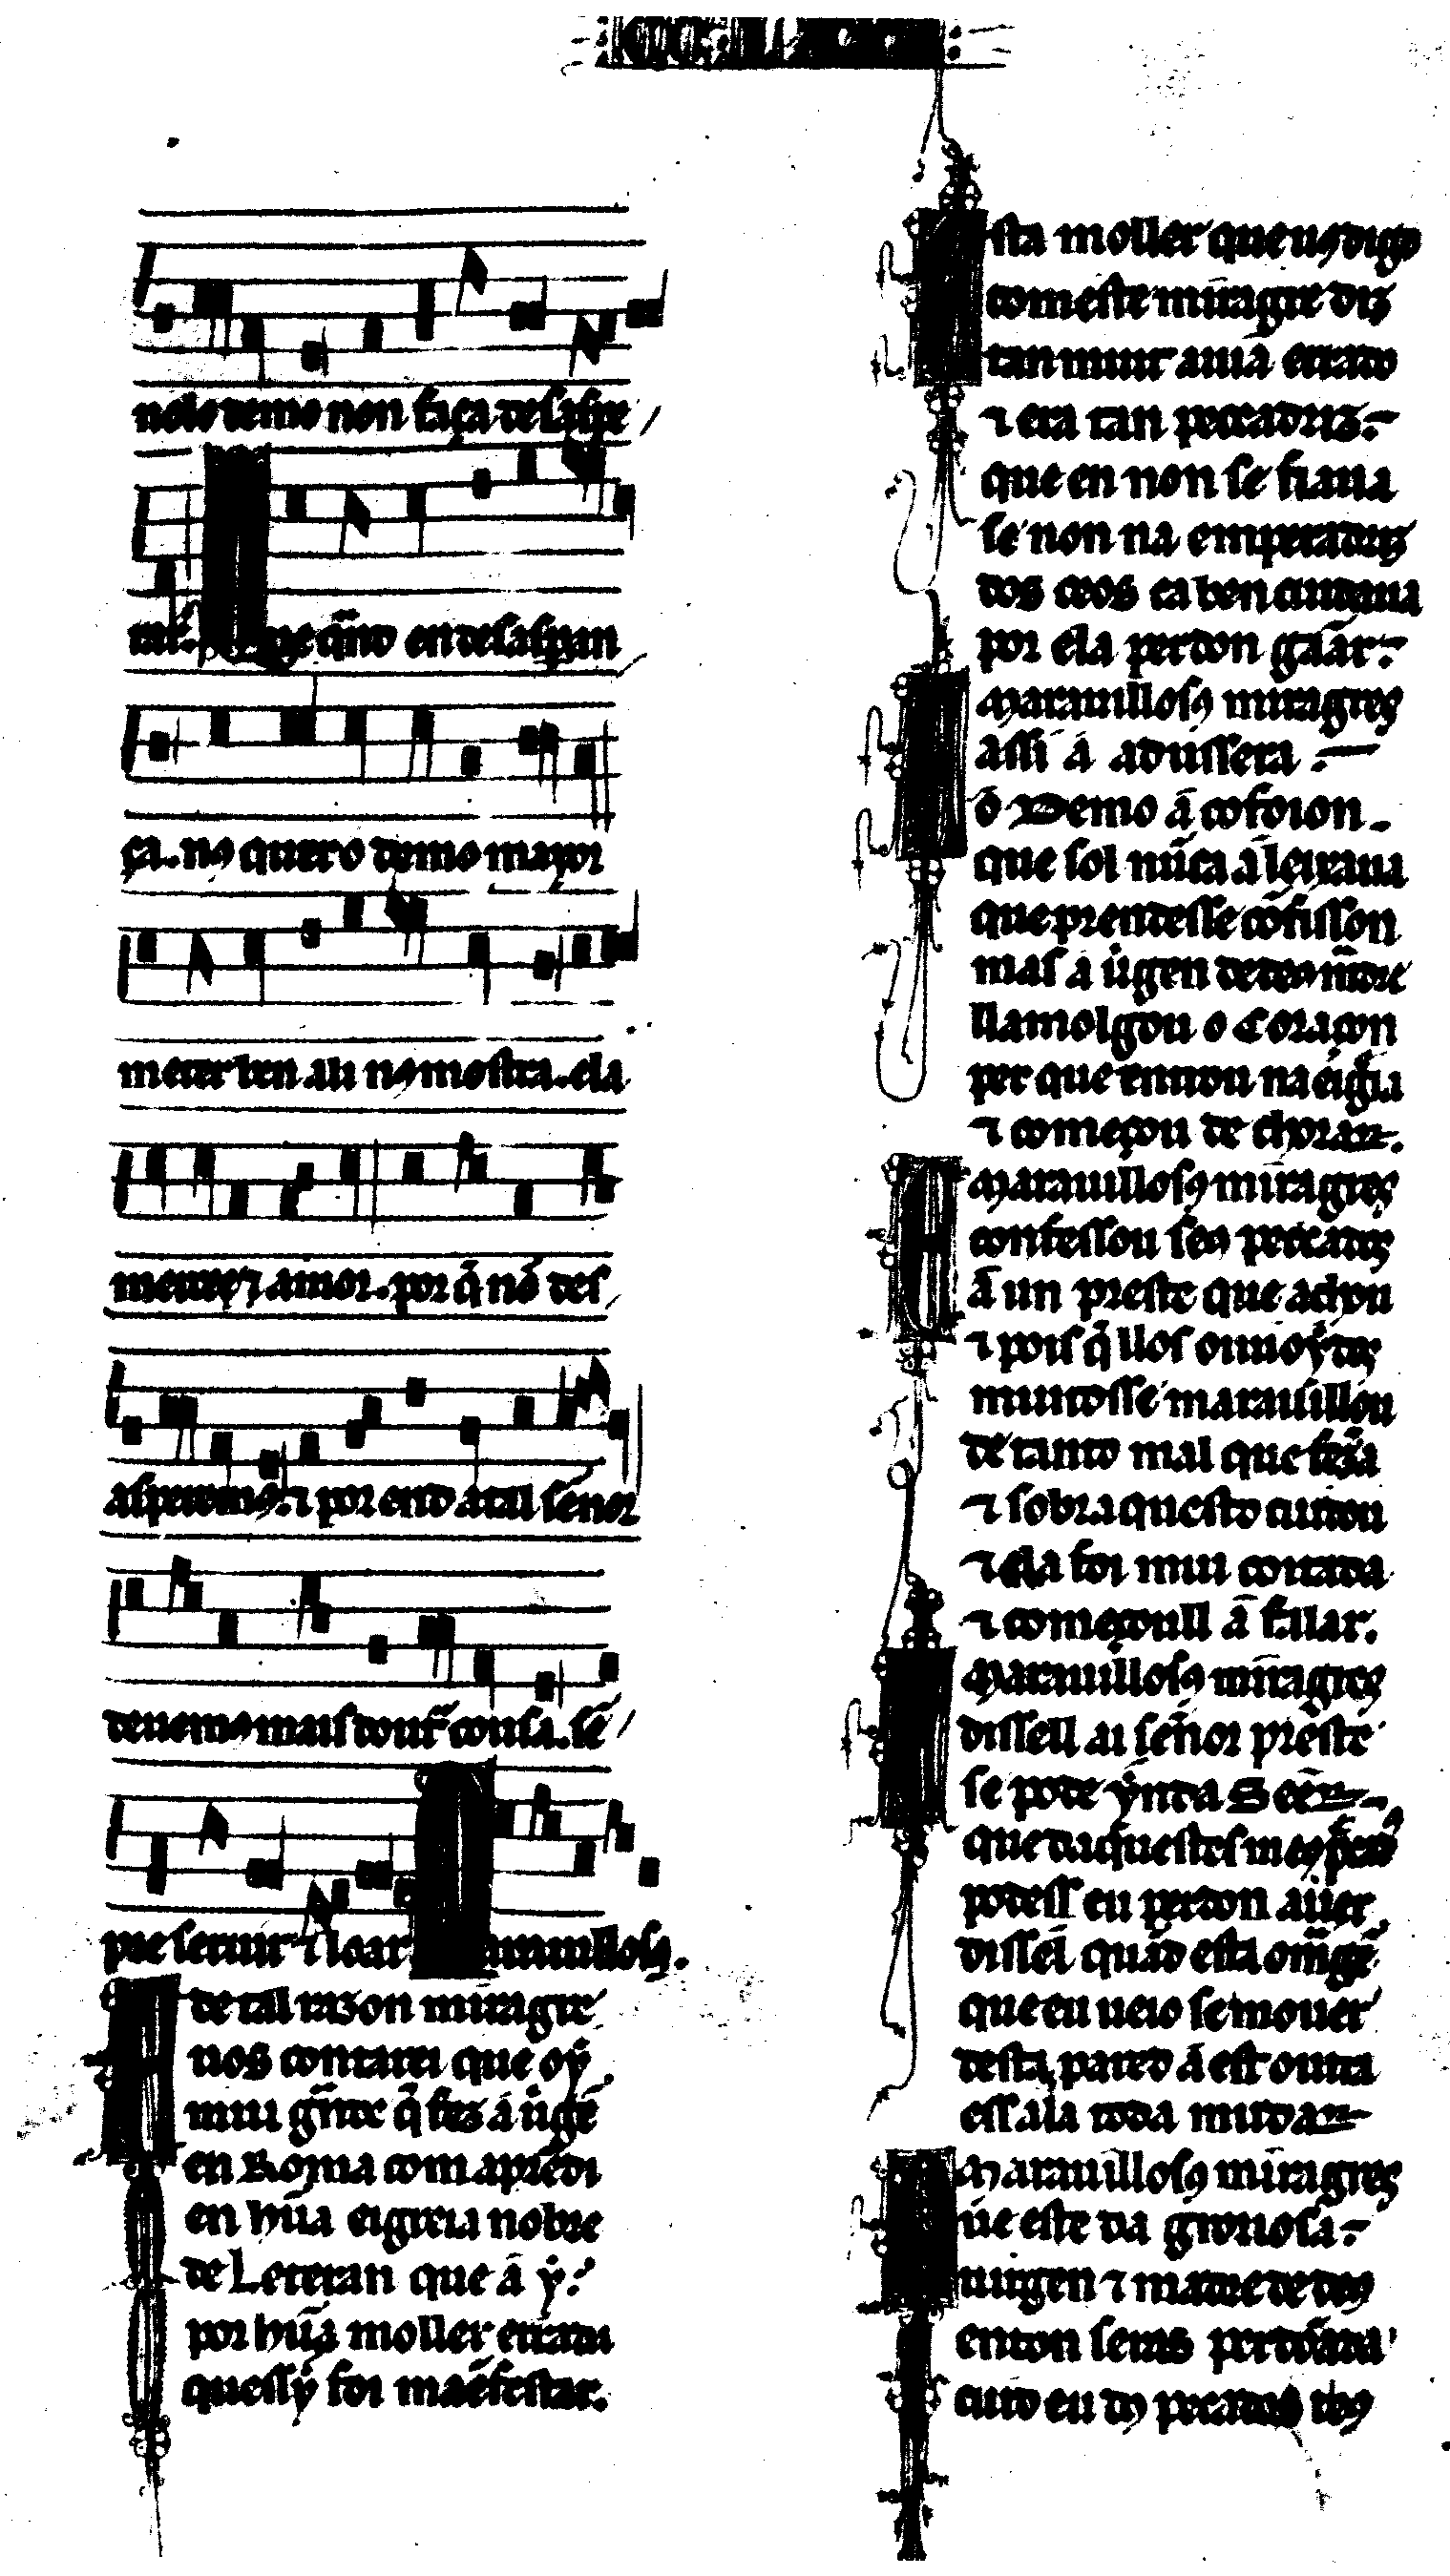 nolo demo non faça desaspe
rar. que q̃ndo en desasperan
ça. nos quer o demo mayor
meter ben ali nos mostra. ela
mercee ⁊ amor. por q̃ nõ des
asperemos. ⁊ por end atal sennor
deuemos mais doutr̃ cousa. sẽ
pre seruir ⁊ loar Marauillosos.
de tal razon miragre
uos contarei que oỹ
mui g̃nde q̃ fez á uirgẽ
en Roma com aprẽdi
en hũa eigreia nobre
de Leteran que á ẏ.
por hũa moller errada
quessẏ foi maẽfestar.
sta moller que uos digo
com este miragre diz
tan muit auia errado
⁊ era tan peccadriz.
que en non se fiaua
se non na emperadriz
dos ceos ca ben cuidaua
por ela perdon gãar.
Marauillosos miragres
assi á adussera.
ó Demo á cofoion.
que sol nũca á leixaua
que prendesse cõfisson
mas a uirgen de deos madre
lla molgou o Coraçon
per que entrou na eigreia
⁊ começou de chorar.
Marauillosos miragres
confessou seos peccados
Á un preste que achou
⁊ pois q̃ llos ouuoẏ dos
muitosse marauillou
de tanto mal que feza
⁊ sobraquesto cuidou
⁊ ela foi mui coitada
⁊ começoull á fillar.
Marauillosos miragres
dissell ai sennor preste
se pode ẏnda seer
que daquestes meos peccados
podess eu perdon auer
dissel quãd esta omagẽ
que eu ueio se mouer
desta pared á est outra
ess ala toda mudar
Marauillosos miragres
ue este da groriosa.
uirgen ⁊ madre de deos
enton seras perdõada
cuid eu dos pecados teos